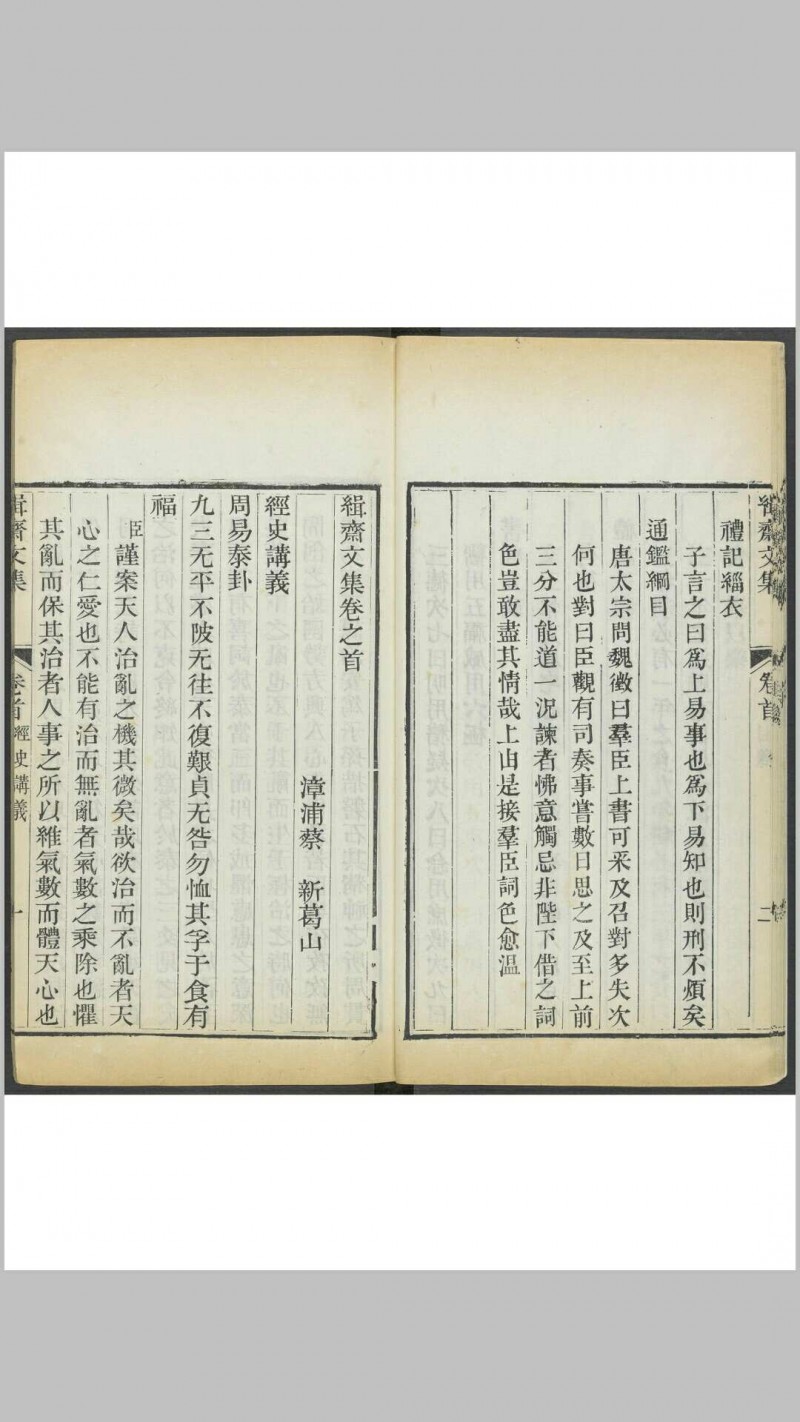 緝齋文集
卷首
二
禮記緇衣
子言之曰爲上易事也爲下易知也則刑不煩矣
通鑑綱目
唐太宗問魏徵曰羣臣上書可采及召對多失次
何也對曰臣觀有司奏事嘗數日思之及至上前
三分不能道一況諫者怫意觸忌非陛下借之詞
色豈敢盡其情哉上由是接羣臣詞色愈溫
緝齋文集卷之首
漳浦蔡 新葛山
經史講義
周易泰卦
九三无平不陂无往不復艱貞无咎勿恤其孚于食有
福
臣謹案天人治亂之機其微矣哉欲治而不亂者天
心之仁愛也不能有治而無亂者氣數之乘除也懼
其亂而保其治者人事之所以維氣數而體天心也
緝齋文集
卷首 經史講義
一